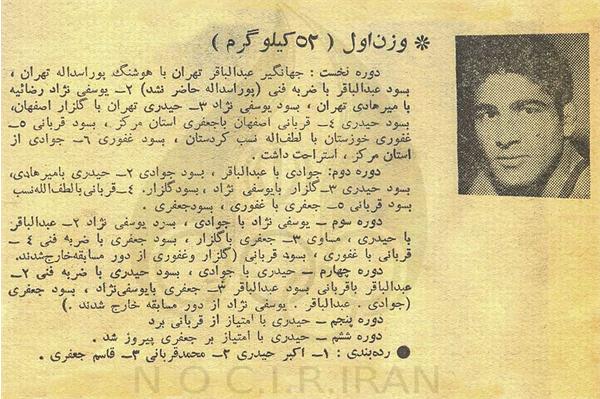 * وزن اول ( ۵۲ کیلو گرم )
دوره نخست : جهانگیر عبدالباقر تهران با هوشنگ پوراسداله تهران ،
بسود عبدالباقر با ضربه فنی (پوراسداله حاضر نشد) ۲ــ یوسفی نژاد رضائیه
با میرهادی تهران ، بسود یوسفی نژاد ۳ــ حیدری تهران با گلزار اصفهان،
بسود حیدری ٤ــ قربانی اصفهان باجعفری استان مرکز ، بسود قربانی ۵ــ
غفوری خوزستان با لطف‌اله نسب کردستان ، بسود غفوری ٦ــ جوادی از
استان مرکز ، استراحت داشت .
دوره دوم: جوادی با عبدالباقر ، بسود جوادی ۲ــ حیدری بامیرهادی،
بسود حیدری ۳ــ گلزار بایوسفی نژاد ، بسودگلزار. ٤ــ قربانی‌بالطف‌الله‌نسب
بسود قربانی ۵ــ جعفری با غفوری ، بسودجعفری .
دوره سوم ــ یوسفی نژاد با جوادی ، بسود یوسفی نژاد ۲ــ عبدالباقر
با حیدری ، مساوی ۳ــ جعفری باگلزار ، بسود جعفری با ضربه فنی ٤ ــ
قربانی با غفوری ، بسود قربانی (گلزار وغفوری از دور مسابقه‌خارج‌شدند.
دوره چهارم ــ حیدری با جوادی ، بسود حیدری با ضربه فنی ۲ــ
عبدالباقر باقربانی بسود عبدالباقر ۳ــ جعفری بایوسفی‌نژاد ، بسود جعفری
(جوادی . عبدالباقر . یوسفی نژاد از دور مسابقه خارج شدند .)
دوره پنجم ــ حیدری با امتیاز از قربانی برد
دوره ششم ــ حیدری با امتیاز بر جعفری پیروز شد .
● رده‌بندی : ۱ــ اکبر حیدری ۲ــ محمدقربانی ۳ــ قاسم جعفری .
N O C.I.R.IRAN